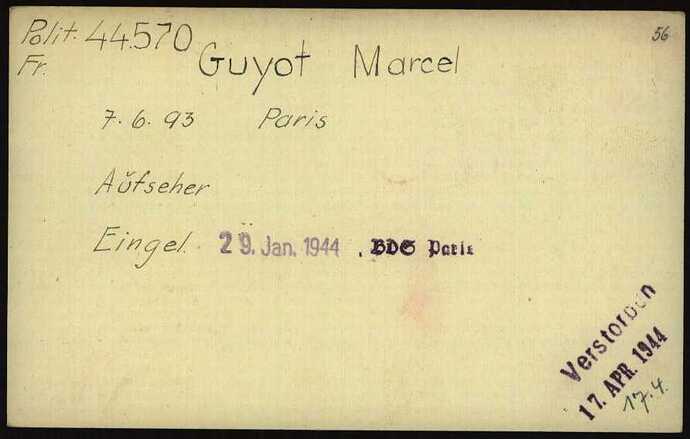 Polit. 44.570
Fr.
56
Guyot Marcel
7.6.93 Paris
Aŭfseher
Eingel. 29. Jan. 1944 . BDS Paris
Verstorben
17. APR. 1944
17.4.